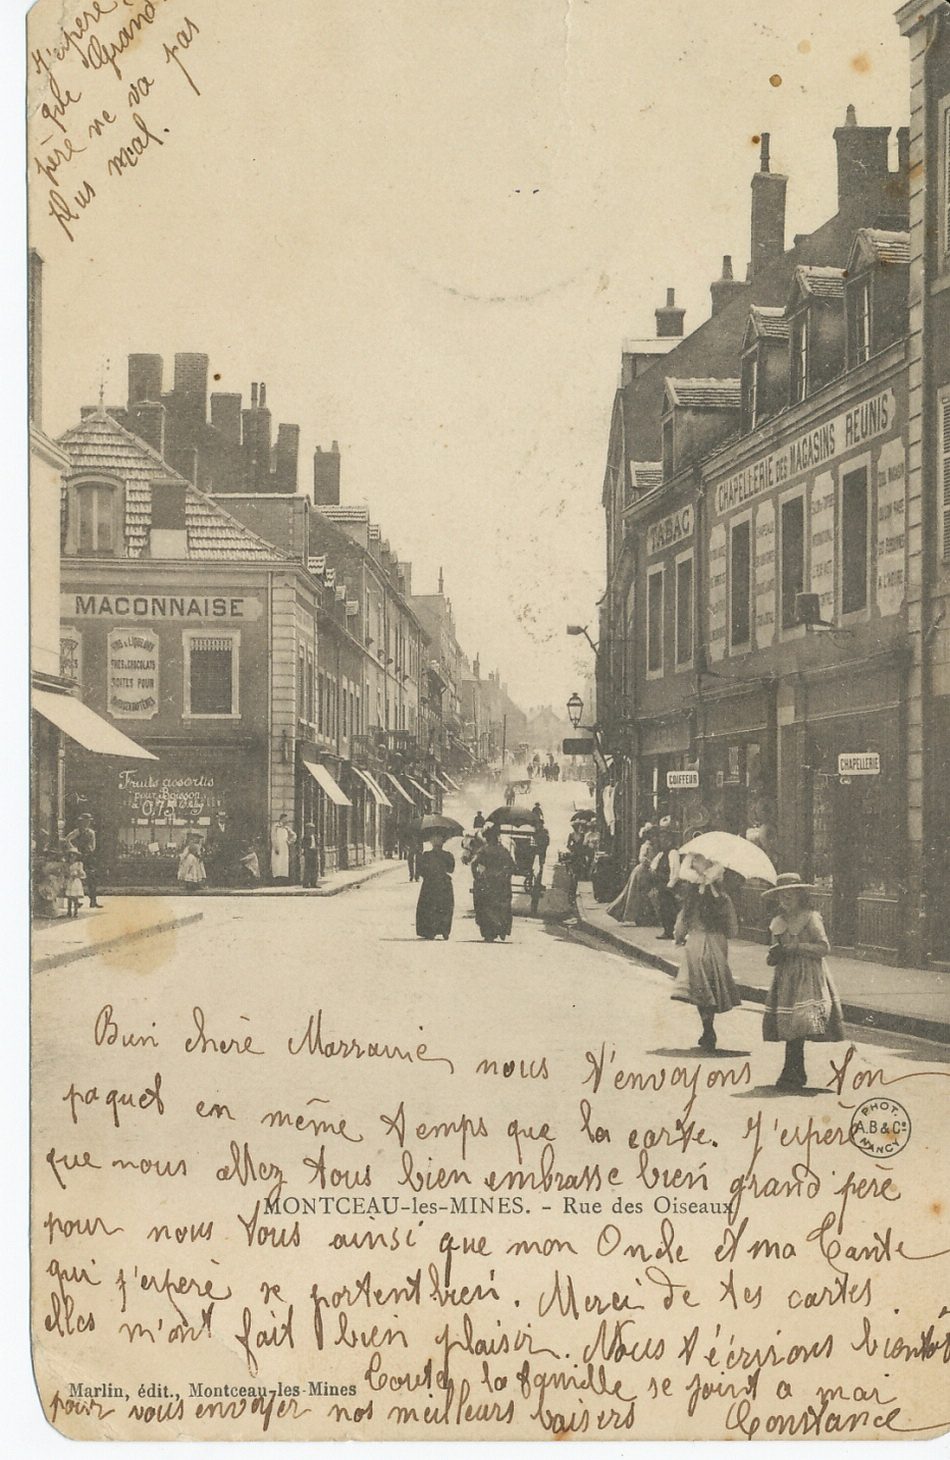 J'espère
que Grand
père ne va pas
plus mal.
CHAPELLERIE DES MAGASINS REUNIS
TABAC
MACONNAISE
VINS & LIQUEURS
THÉS & CHOCOLATS
BOITES POUR
BAPTÊMES
Fruits assortis
pour Boisson
à 0,75 le kg
COIFFEUR
CHAPELLERIE
Bien chère Marraine nous t'envoyons ton
paquet en même temps que la carte. J'espère
PHOT.
A.B & Cº
NANCY
que nous allez tous bien embrasse bien grand père
MONTCEAU-les-MINES. - Rue des Oiseaux
pour nous tous ainsi que mon Oncle et ma Tante
qui j'espère se portent bien. Merci de tes cartes.
elles m'ont fait bien plaisir. Nous t'écrirons bientôt
Toute la famille se joint a moi
Marlin, édit., Montceau-les-Mines
pour vous envoyer nos meilleurs baisers Constance